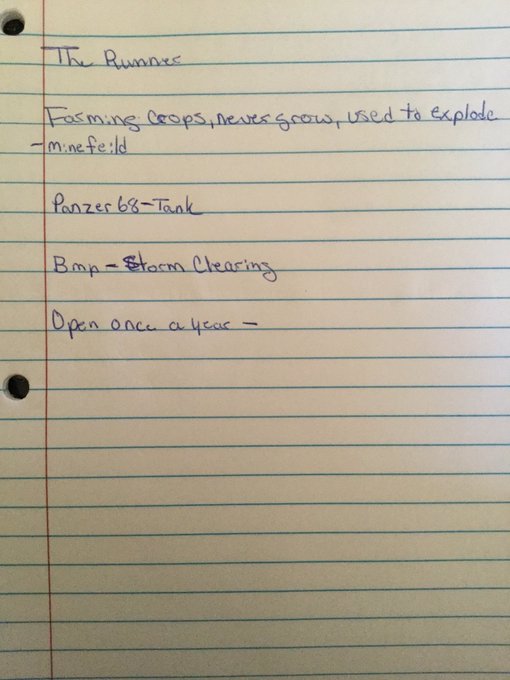 The Runner
Farming Crops, never grow, used to explode
- minefeild
Panzer 68 - Tank
Bmp - Storm Clearing
Open once a year -